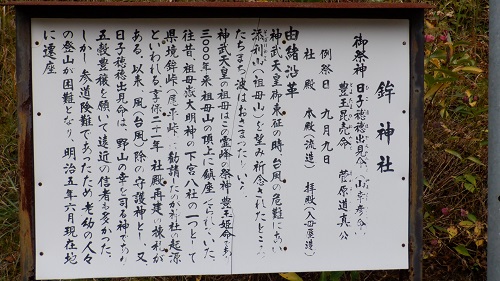 鉾神社
御祭神 日子穂穂出見命(山幸彦命)
豊玉毘売命 菅原道真公
例祭日 九月九日
社殿 本殿(流造) 拝殿(入母屋造)
由緒沿革
神武天皇御東征の時台風の危難にあい
添利山(祖母山)を望み祈念されたところ
たちまち波はおさまったという。
神武天皇の祖母はこの霊峰の祭神豊玉姫命であり
三〇〇〇年来祖母山の頂上に鎮座せられていた。
往昔祖母嶽大明神の下宮八社の一つとして
県境鉾峠(尾平峠)に勧請したのが神社の起源
といわれる。享保二十一年社殿再建の棟札が
ある。以来風(台風)除の守護神とし、又
日子穂穂出見命は、野山の幸を司る神であり
五穀豊穣を願いて遠近の信者も多かった。
しかし参道険難であったため老幼の人々
の登山が困難となり、明治五年六月現在地
に遷座